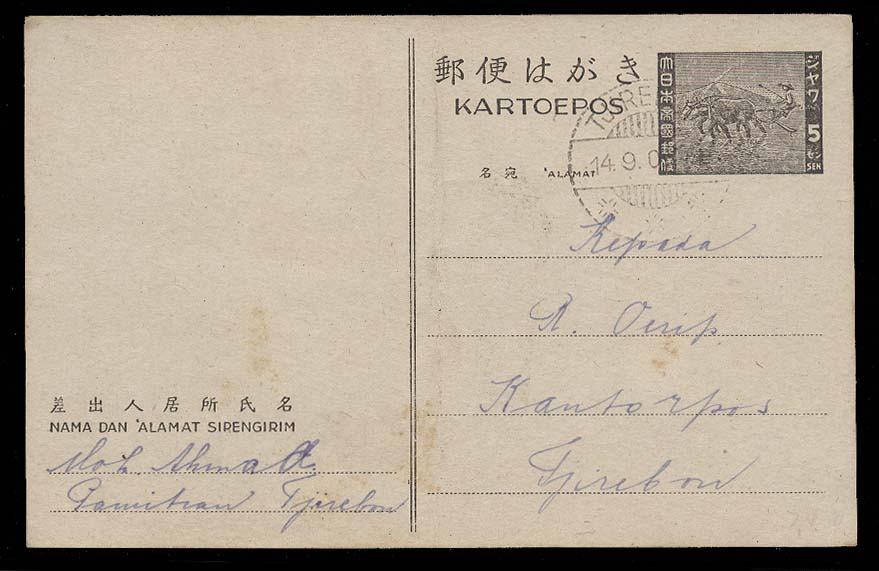 郵便はがき
KARTOEPOS
大日本帝國郵便
ジャワ
5
セン
SEN
14.9.0
名宛 'ALAMAT
Kepada
R. Oerip
Kantorpos
Tjirebon
差出人居所氏名
NAMA DAN 'ALAMAT SIPENGIRIM
Moh. Ahmad
Pamitran Tjirebon